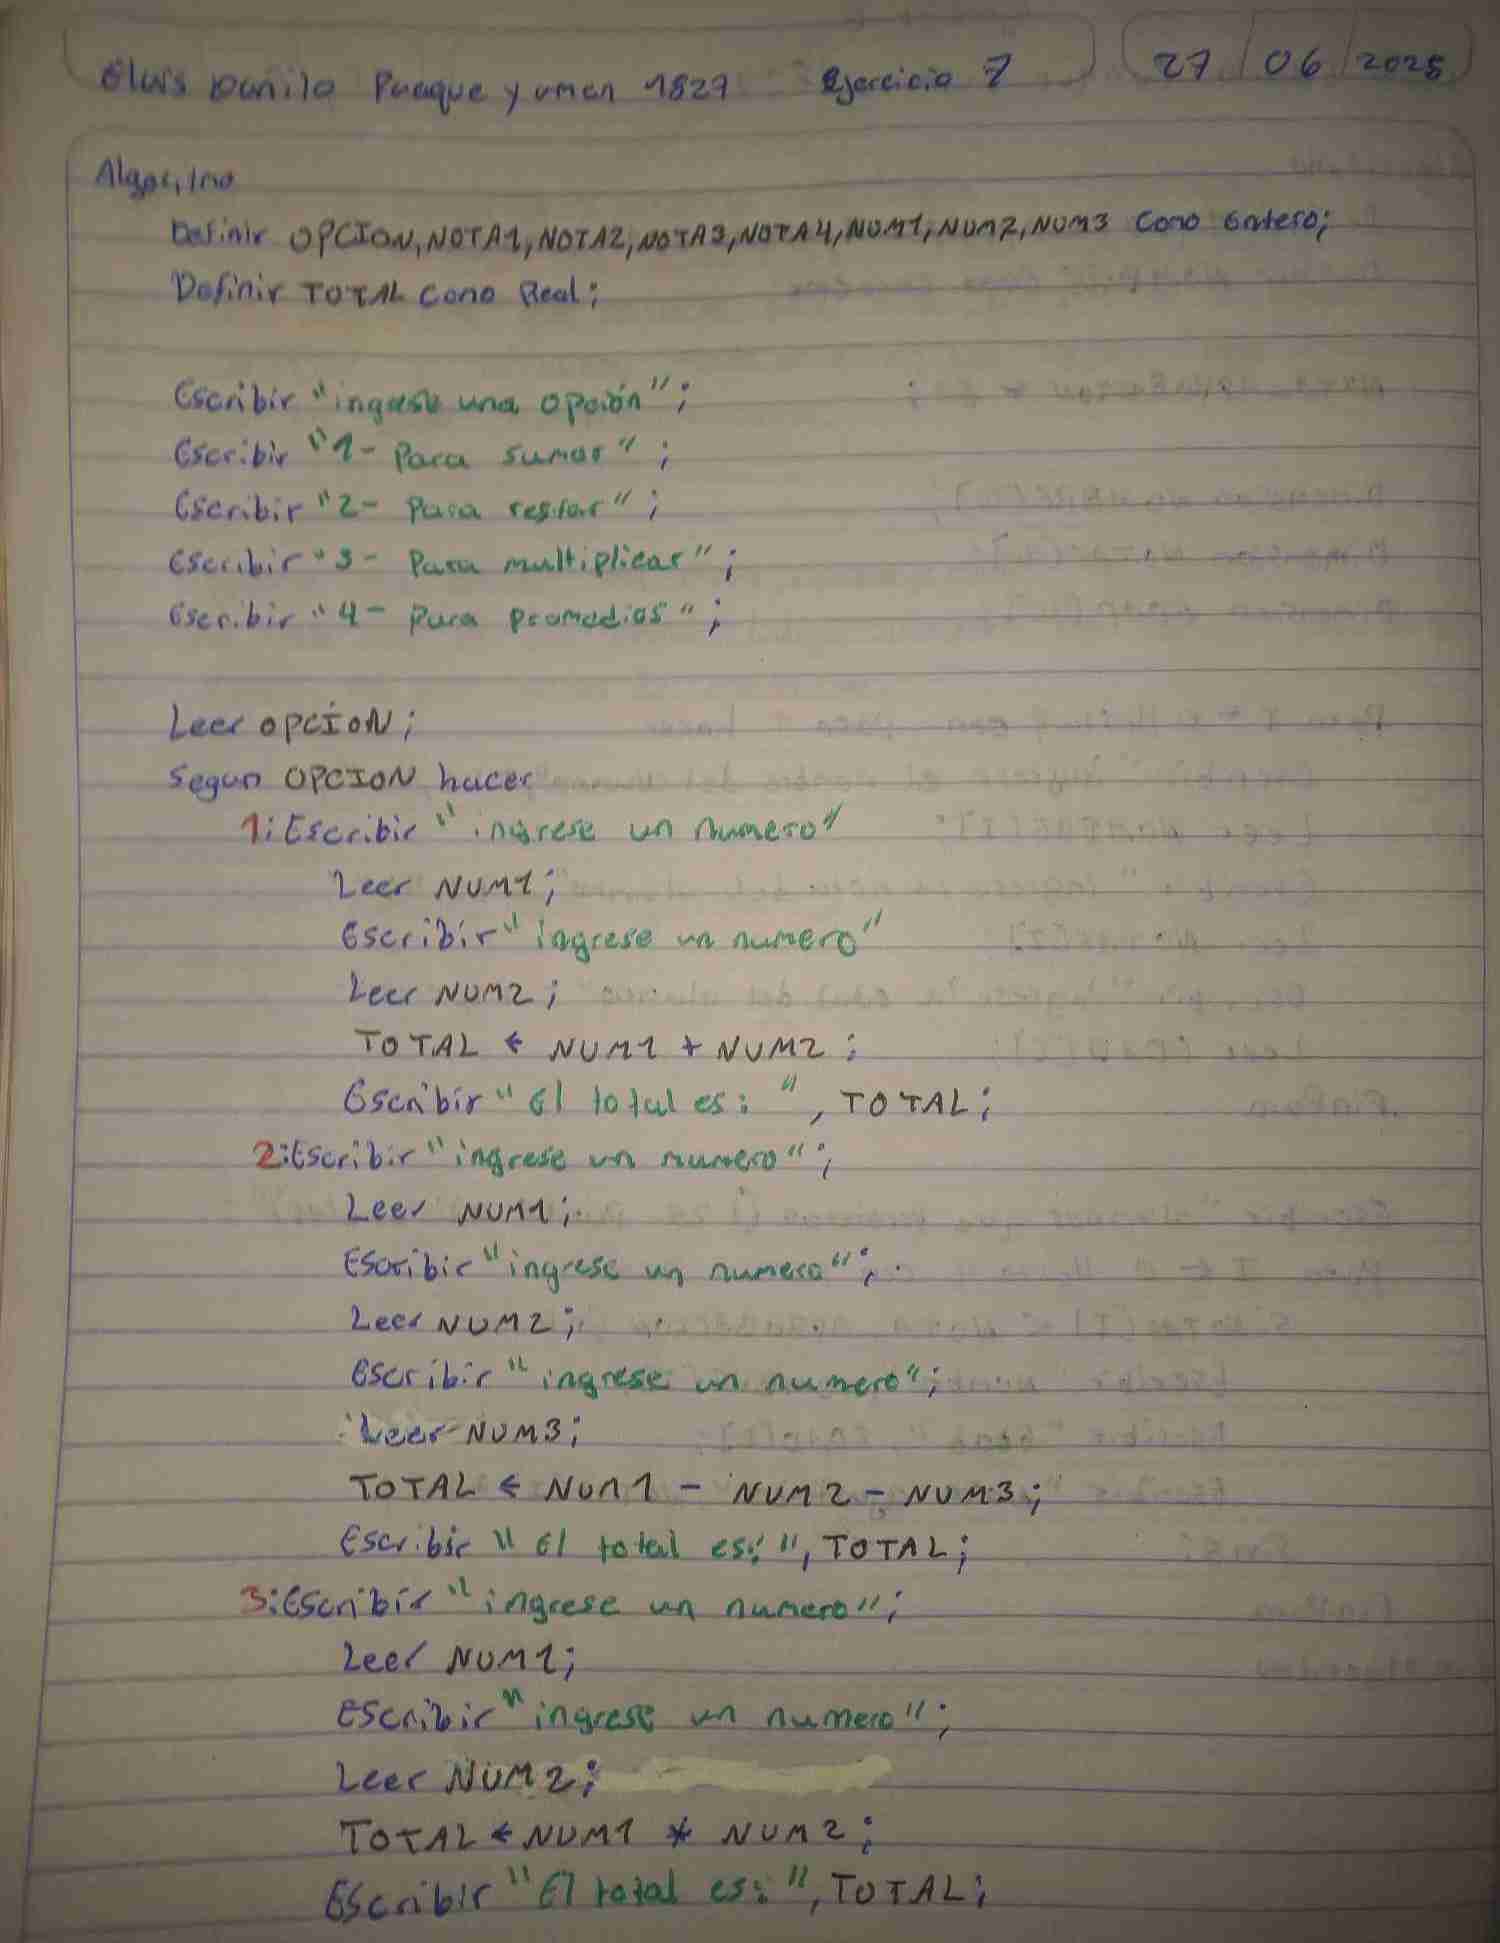 Eluis Danilo Puaque yumen 1827 Ejercicio 7 27/06/2025
Algoritmo
Definir OPCION,NOTA1,NOTA2,NOTA3,NOTA4,NUM1,NUM2,NUM3 Como Entero;
Definir TOTAL Como Real;
Escribir "ingrese una opción";
Escribir "1- Para sumar";
Escribir "2- Para restar";
Escribir "3- Para multiplicar";
Escribir "4- Para promedios";
Leer OPCION;
Segun OPCION hacer
1: Escribir "ingrese un numero"
Leer NUM1;
Escribir "ingrese un numero"
Leer NUM2;
TOTAL ← NUM1 + NUM2;
Escribir "El total es: ", TOTAL;
2:Escribir "ingrese un numero";
Leer NUM1;
Escribir "ingrese un numero";
Leer NUM2;
Escribir "ingrese un numero";
Leer NUM3;
TOTAL ← NUM1 - NUM2 - NUM3;
Escribir "El total es:", TOTAL;
3:Escribir "ingrese un numero";
Leer NUM1;
Escribir "ingrese un numero";
Leer NUM2;
TOTAL ← NUM1 * NUM2;
Escribir "El total es:", TOTAL;